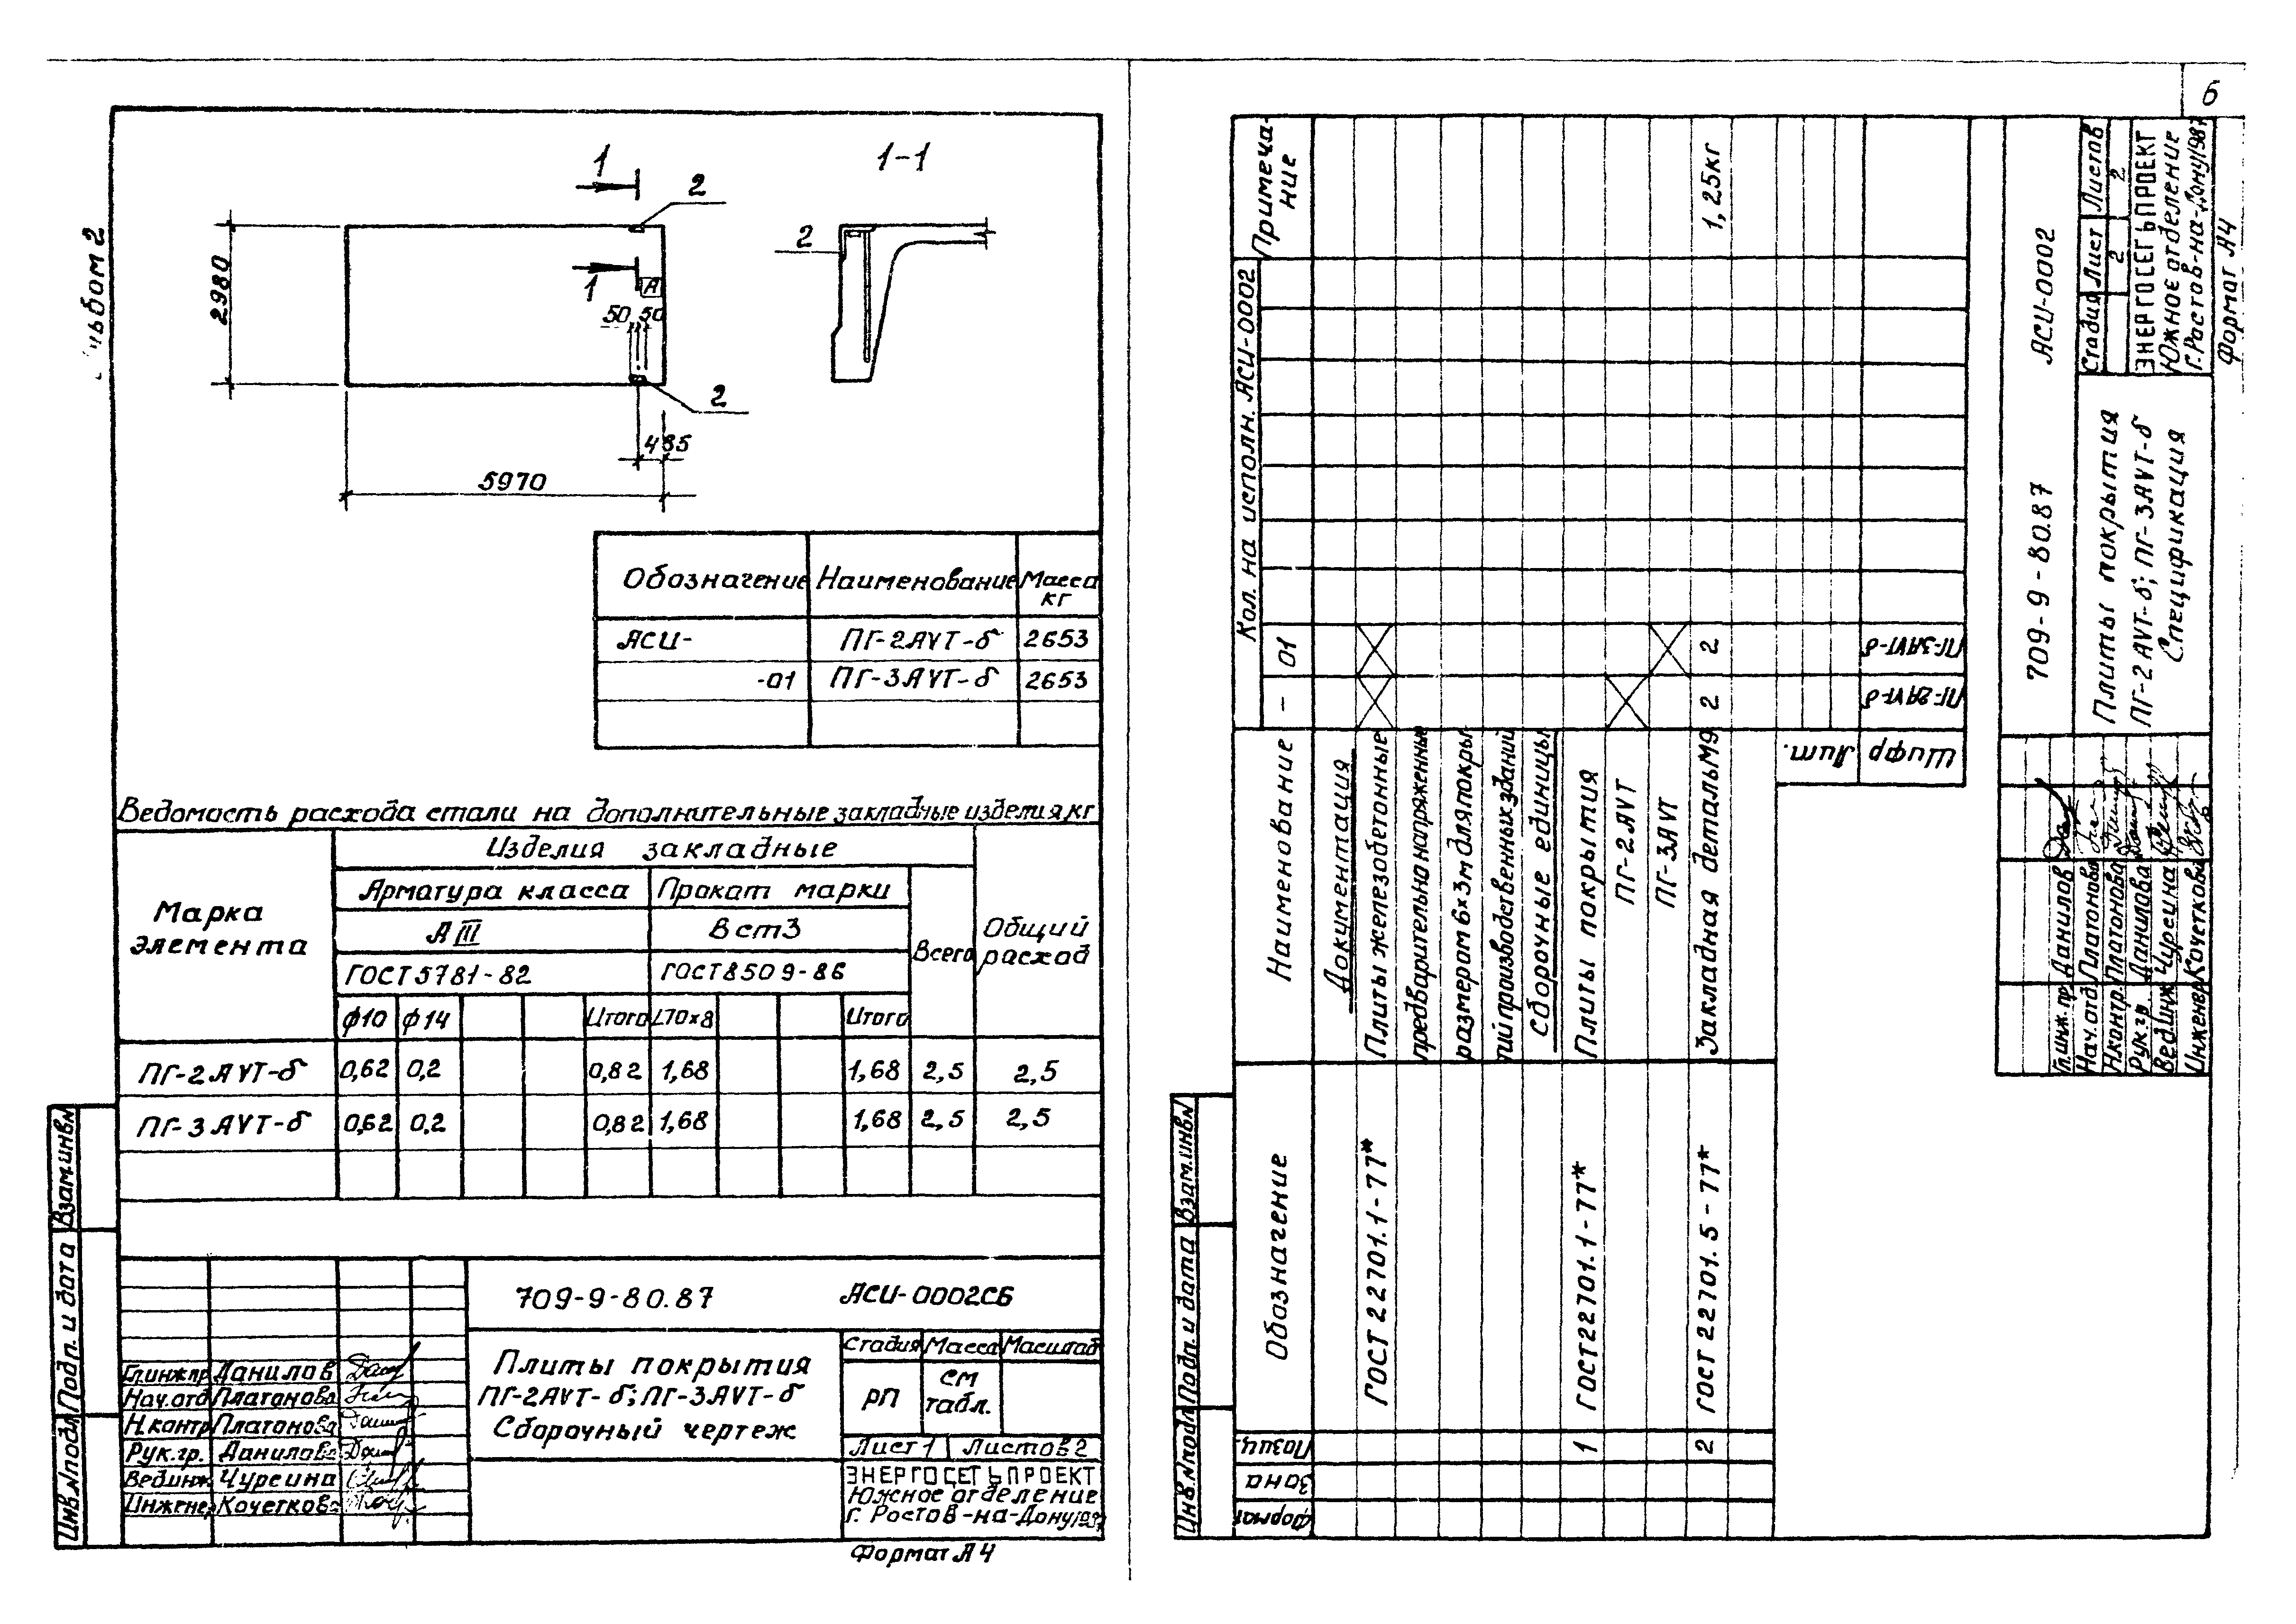 6
1
2
1-1
2
2980
1
А
50 50
2
485
5970
Обозначение Наименование Масса кг
АСИ- ПГ-2АVТ-б 2653
-01 ПГ-3АVТ-б 2653
Ведомость расхода стали на дополнительные закладные изделия, кг
Марка элемента
Изделия закладные
Общий расход
Арматура класса Прокат марки
Всего
АIII ВСт3
ГОСТ 5781-82 ГОСТ 8509-86
ф10 ф14 Итого L70×8 Итого
ПГ-2АVТ-б 0,62 0,2 0,82 1,68 1,68 2,5 2,5
ПГ-3АVТ-б 0,62 0,2 0,82 1,68 1,68 2,5 2,5
Взам.инв.N
Подп. и дата
Инв.Nподл.
709-9-80.87 АСИ-0002СБ
Плиты покрытия
ПГ-2АVТ-б; ПГ-3АVТ-б
Сборочный чертеж
Стадия Масса Масштаб
РП см табл.
Лист 1 Листов 2
ЭНЕРГОСЕТЬПРОЕКТ
Южное отделение
г. Ростов-на-Дону 1987
Гл.инж.пр. Данилов
Нач.отд. Платонова
Н.контр. Платонова
Рук.гр. Данилова
Вед.инж. Чуреина
Инженер Кочеткова
Формат А4
Формат
Зона
Позиц.
Обозначение
Наименование
Кол. на исполн. АСИ-0002
Примечание
- 01
Документация
ГОСТ 22701.1-77* Плиты железобетонные
предварительно напряженные
размером 6×3м для покры
тий производственных зданий
Сборочные единицы
1 ГОСТ 22701.1-77* Плиты покрытия
ПГ-2АVТ
ПГ-3АVТ
2 ГОСТ 22701.5-77* Закладная деталь М9 2 2 1,25кг
Лит.
Шифр
ПГ-2АVТ-б
ПГ-3АVТ-б
Взам.инв.N
Подп. и дата
Инв.Nподл.
709-9-80.87 АСИ-0002
Плиты покрытия
ПГ-2АVТ-б; ПГ-3АVТ-б
Спецификация
Стадия Лист Листов
2 2
ЭНЕРГОСЕТЬПРОЕКТ
Южное отделение
г. Ростов-на-Дону 1987
Гл.инж.пр. Данилов
Нач.отд. Платонова
Н.контр. Платонова
Рук.гр. Данилова
Вед.инж. Чуреина
Инженер Кочеткова
Формат А4